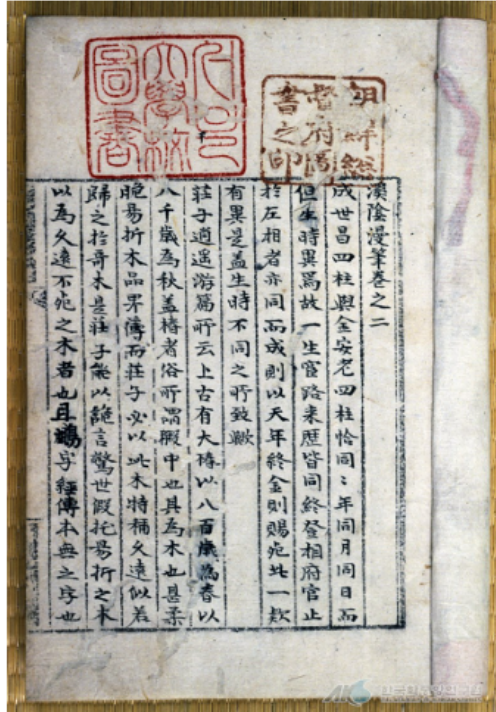 서울
大學校
圖書
朝鮮總
督府圖
書之印
溪陰漫筆卷之二
成世昌四柱與金安老四柱恰同〻年同月同日而
但生時異焉故一生宦路来歷皆同終登相府官止
於左相者亦同而成則以天年終金則賜死此一欵
有異是盖生時不同之所致歟
莊子逍遥游篇所云上古有大椿以八百歲為春以
八千歲為秋盖椿者俗所謂假中也其為木也甚柔
脆易折木品而莊子必以此木特稱久遠似若
歸之於奇木是莊子能以詭言驚世假托易折之木
以為久遠不死之木者也且字經傳本無之字也